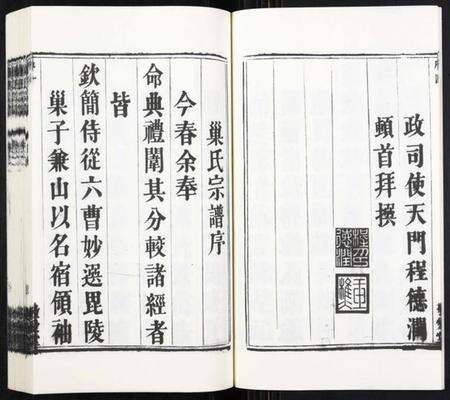 政司使天門程德潤
頓首拜撰
巢氏宗譜序
今春余奉
命典禮闈其分較諸經者
皆
欽簡侍從六曹妙選毘陵
巢子兼山以名宿領袖